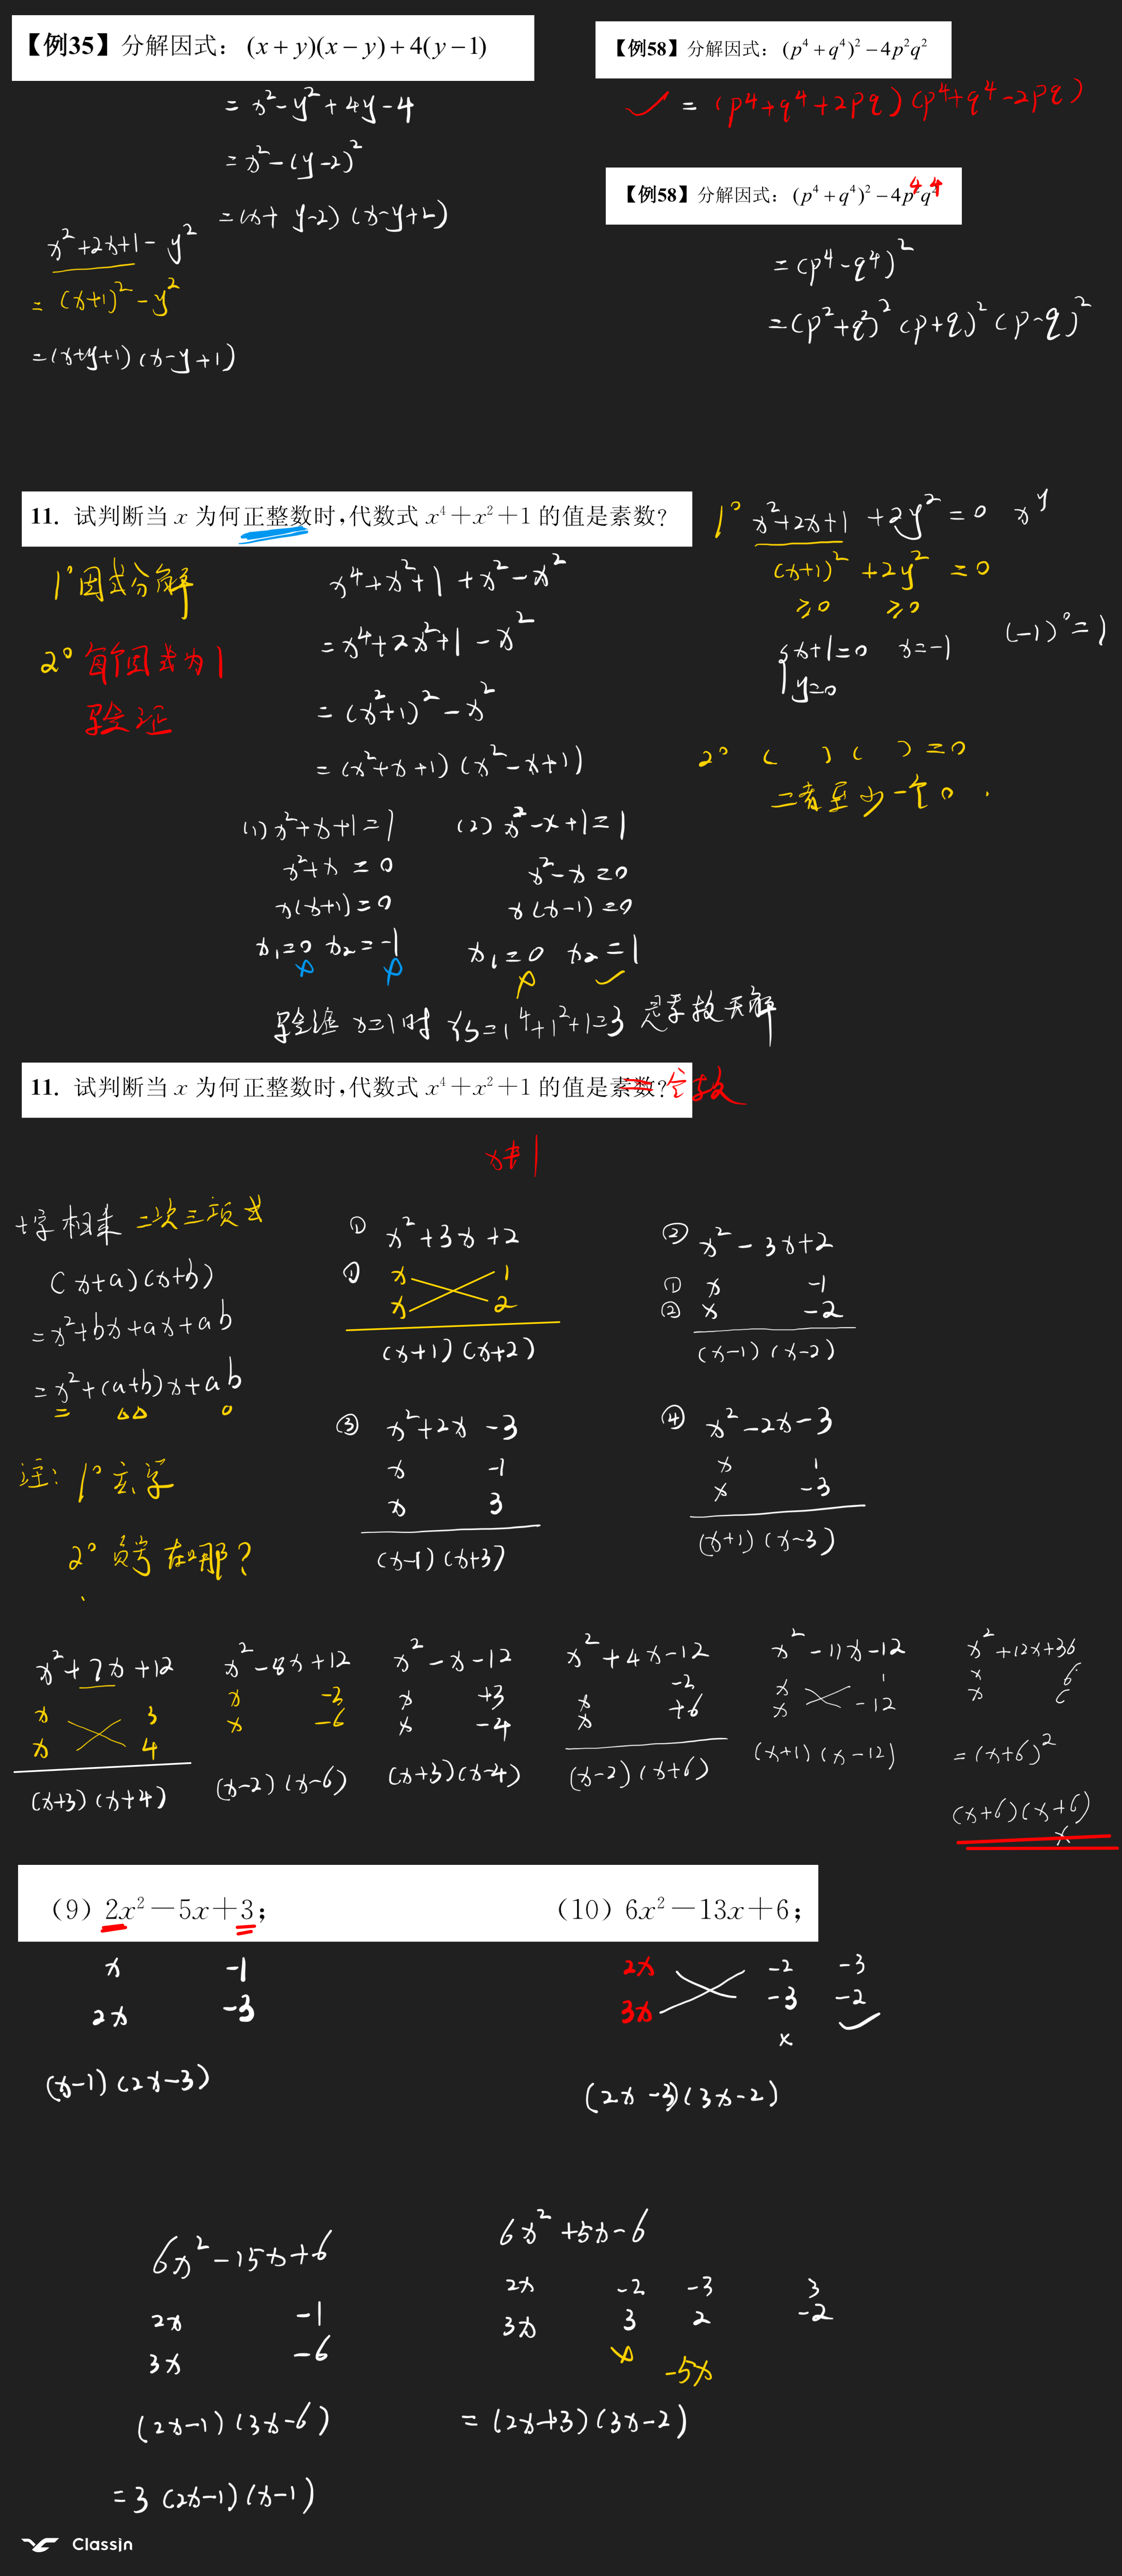 【例35】分解因式：(x+y)(x−y)+4(y−1)
=x²-y²+4y-4
=x²-(y-2)²
=(x+y-2)(x-y+2)
x²+2x+1-y²
=(x+1)²-y²
=(x+y+1)(x-y+1)
【例58】分解因式：(p⁴+q⁴)²−4p²q²
✓ =(p⁴+q⁴+2pq)(p⁴+q⁴-2pq)
【例58】分解因式：(p⁴+q⁴)²−4p⁴q⁴
=(p⁴-q⁴)²
=(p²+q²)²(p+q)²(p-q)²
11. 试判断当 x 为何正整数时,代数式 x⁴+x²+1 的值是素数?
1° 因式分解
2° 每个因式为1
验证
x⁴+x²+1+x²-x²
=x⁴+2x²+1-x²
=(x²+1)²-x²
=(x²+x+1)(x²-x+1)
(1) x²+x+1=1
x²+x=0
x(x+1)=0
x₁=0 x₂=-1
(2) x²-x+1=1
x²-x=0
x(x-1)=0
x₁=0 x₂=1
x=1时 =1⁴+1²+1=3 是素数
1° x²+2x+1+2y²=0 xʸ
(x+1)²+2y²=0
≥0 ≥0
{x+1=0 x=-1
y=0
(-1)⁰=1
2° ( )( )=0
二者至少一个0.
11. 试判断当 x 为何正整数时,代数式 x⁴+x²+1 的值是素数? 合数
x≠1
十字相乘 二次三项式
(x+a)(x+b)
=x²+bx+ax+ab
=x²+(a+b)x+ab
注: 1° 玄学
2° 负号在哪?
① x²+3x+2
① x 1
x 2
(x+1)(x+2)
② x²-3x+2
① x -1
② x -2
(x-1)(x-2)
③ x²+2x-3
x -1
x 3
(x-1)(x+3)
④ x²-2x-3
x 1
x -3
(x+1)(x-3)
x²+7x+12
x 3
x 4
(x+3)(x+4)
x²-8x+12
x -2
x -6
(x-2)(x-6)
x²-x-12
x +3
x -4
(x+3)(x-4)
x²+4x-12
x -2
x +6
(x-2)(x+6)
x²-11x-12
x 1
x -12
(x+1)(x-12)
x²+12x+36
x 6
x 6
=(x+6)²
(x+6)(x+6)
×
（9）2x²−5x+3;
x -1
2x -3
(x-1)(2x-3)
（10）6x²−13x+6;
2x -2 -3
3x -3 -2
× ✓
(2x-3)(3x-2)
6x²-15x+6
2x -1
3x -6
(2x-1)(3x-6)
=3(2x-1)(x-1)
6x²+5x-6
2x -2 -3 3
3x 3 2 -2
× -5x
=(2x+3)(3x-2)
ClassIn